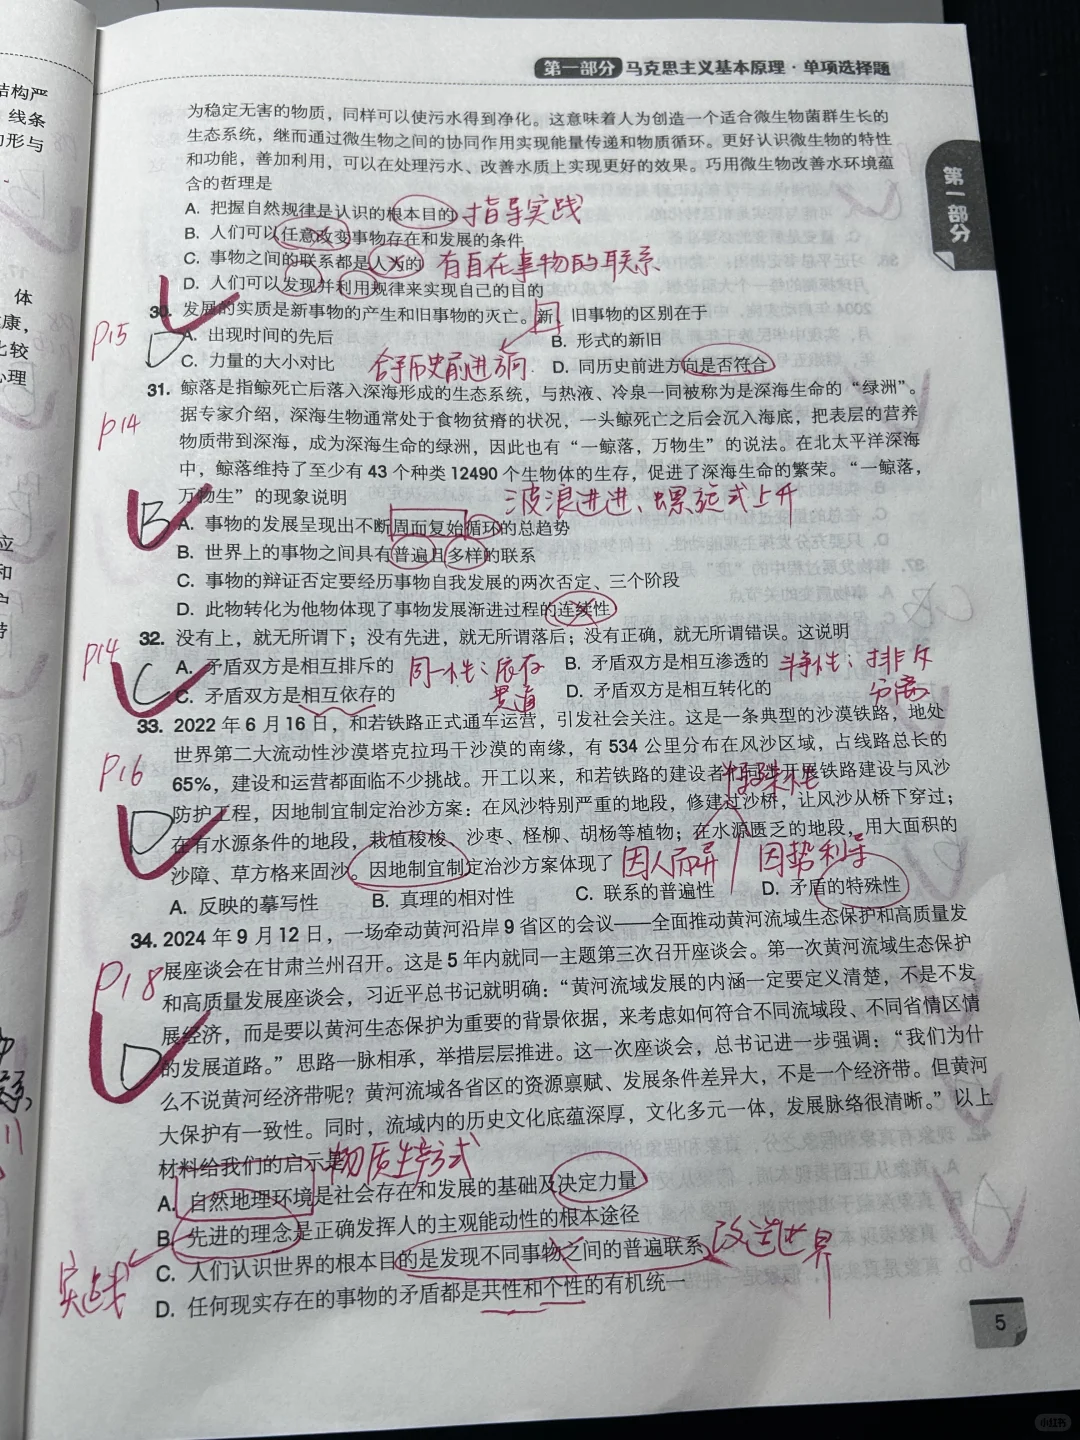 第一部分 马克思主义基本原理·单项选择题
结构严
线条
的形与
体
健康，
比较
心理
立
和
户
持
第一部分
为稳定无害的物质，同样可以使污水得到净化。这意味着人为创造一个适合微生物菌群生长的
生态系统，继而通过微生物之间的协同作用实现能量传递和物质循环。更好认识微生物的特性
和功能，善加利用，可以在处理污水、改善水质上实现更好的效果。巧用微生物改善水环境蕴
含的哲理是
A. 把握自然规律是认识的根本目的 指导实践
B. 人们可以任意改变事物存在和发展的条件
C. 事物之间的联系都是人为的 有自在事物的联系
D. 人们可以发现并利用规律来实现自己的目的
30. 发展的实质是新事物的产生和旧事物的灭亡。新、旧事物的区别在于
P15
D
A. 出现时间的先后 B. 形式的新旧
C. 力量的大小对比 合乎历史前进方向 D. 同历史前进方向是否符合
31. 鲸落是指鲸死亡后落入深海形成的生态系统，与热液、冷泉一同被称为是深海生命的“绿洲”。
P14
据专家介绍，深海生物通常处于食物贫瘠的状况，一头鲸死亡之后会沉入海底，把表层的营养
物质带到深海，成为深海生命的绿洲，因此也有“一鲸落，万物生”的说法。在北太平洋深海
中，鲸落维持了至少有 43 个种类 12490 个生物体的生存，促进了深海生命的繁荣。“一鲸落，
万物生”的现象说明 波浪进进、螺旋式上升
B
A. 事物的发展呈现出不断周而复始循环的总趋势
B. 世界上的事物之间具有普遍且多样的联系
C. 事物的辩证否定要经历事物自我发展的两次否定、三个阶段
D. 此物转化为他物体现了事物发展渐进过程的连续性
32. 没有上，就无所谓下；没有先进，就无所谓落后；没有正确，就无所谓错误。这说明
P14
C
A. 矛盾双方是相互排斥的 同一性：依存 B. 矛盾双方是相互渗透的 斗争性：排斥
C. 矛盾双方是相互依存的 贯通 D. 矛盾双方是相互转化的 分离
33. 2022 年 6 月 16 日，和若铁路正式通车运营，引发社会关注。这是一条典型的沙漠铁路，地处
世界第二大流动性沙漠塔克拉玛干沙漠的南缘，有 534 公里分布在风沙区域，占线路总长的
P16
65%，建设和运营都面临不少挑战。开工以来，和若铁路的建设者同步开展铁路建设与风沙
特殊性
D
防护工程，因地制宜制定治沙方案：在风沙特别严重的地段，修建过沙桥，让风沙从桥下穿过；
在有水源条件的地段，栽植梭梭、沙枣、柽柳、胡杨等植物；在水源匮乏的地段，用大面积的
沙障、草方格来固沙。因地制宜制定治沙方案体现了 因人而异 因势利导
A. 反映的摹写性 B. 真理的相对性 C. 联系的普遍性 D. 矛盾的特殊性
34. 2024 年 9 月 12 日，一场牵动黄河沿岸 9 省区的会议——全面推动黄河流域生态保护和高质量发
P18
展座谈会在甘肃兰州召开。这是 5 年内就同一主题第三次召开座谈会。第一次黄河流域生态保护
和高质量发展座谈会，习近平总书记就明确：“黄河流域发展的内涵一定要定义清楚，不是不发
展经济，而是要以黄河生态保护为重要的背景依据，来考虑如何符合不同流域段、不同省情区情
D
的发展道路。”思路一脉相承，举措层层推进。这一次座谈会，总书记进一步强调：“我们为什
么不说黄河经济带呢？黄河流域各省区的资源禀赋、发展条件差异大，不是一个经济带。但黄河
大保护有一致性。同时，流域内的历史文化底蕴深厚，文化多元一体，发展脉络很清晰。”以上
材料给我们的启示是 物质生产方式
A. 自然地理环境是社会存在和发展的基础及决定力量
B. 先进的理念是正确发挥人的主观能动性的根本途径
C. 人们认识世界的根本目的是发现不同事物之间的普遍联系 改造世界
实践
D. 任何现实存在的事物的矛盾都是共性和个性的有机统一
5
小红书